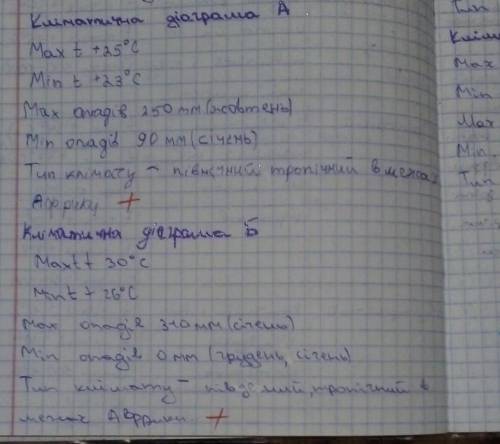 Кліматична діаграма А
Max t +25°C
Min t +23°C
Max опадів 250 мм (жовтень)
Min опадів 90 мм (січень)
Тип клімату – північний тропічний в межах
Африки +
Кліматична діаграма Б
Max t + 30°C
Min t + 26°C
Max опадів 310 мм (січень)
Min опадів 0 мм (грудень, січень)
Тип клімату – південний, тропічний в
межах Африки +
Тип
Клім
Max
Min
Max
Min
Тип